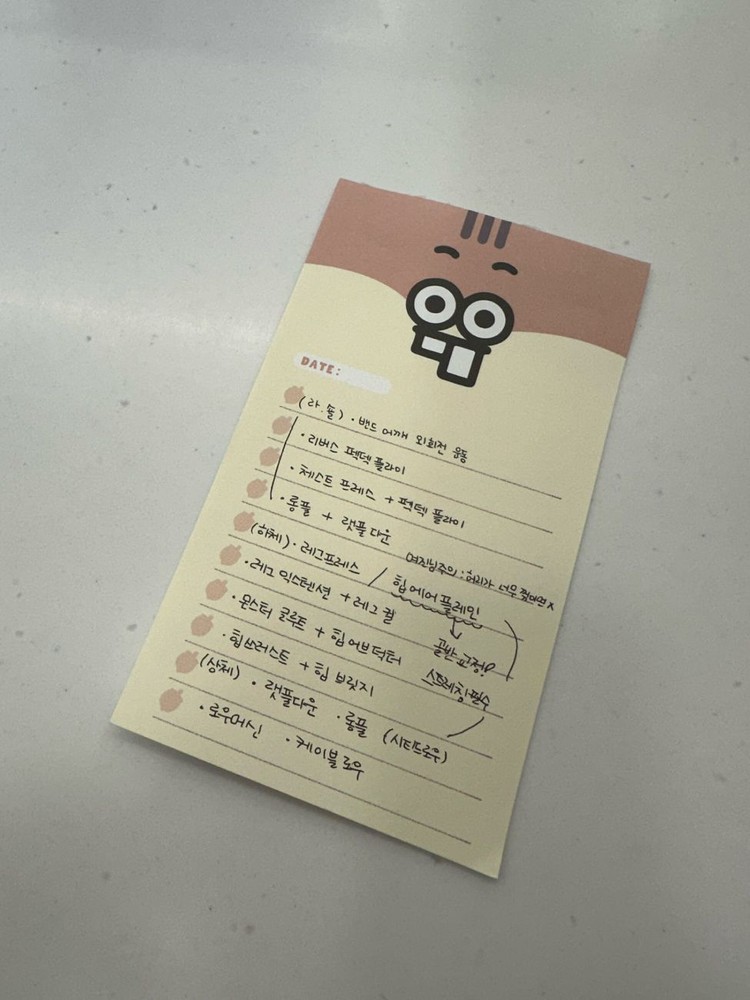 DATE:
(라.숄) · 밴드 어깨 외회전 운동
· 리버스 펙덱 플라이
· 체스트 프레스 + 펙덱 플라이
· 롱풀 + 랫풀다운
(하체) · 레그프레스 / 힙 에어플레인
여진님주의 : 허리가 너무 꺾이면 X
· 레그 익스텐션 + 레그 컬
골반 교정!
· 몬스터 글루트 + 힙 어브덕터
스트레칭 필수
· 힙쓰러스트 + 힙 브릿지
(상체) · 랫풀다운 · 롱풀 (시티드로우)
· 로우머신 · 케이블 로우